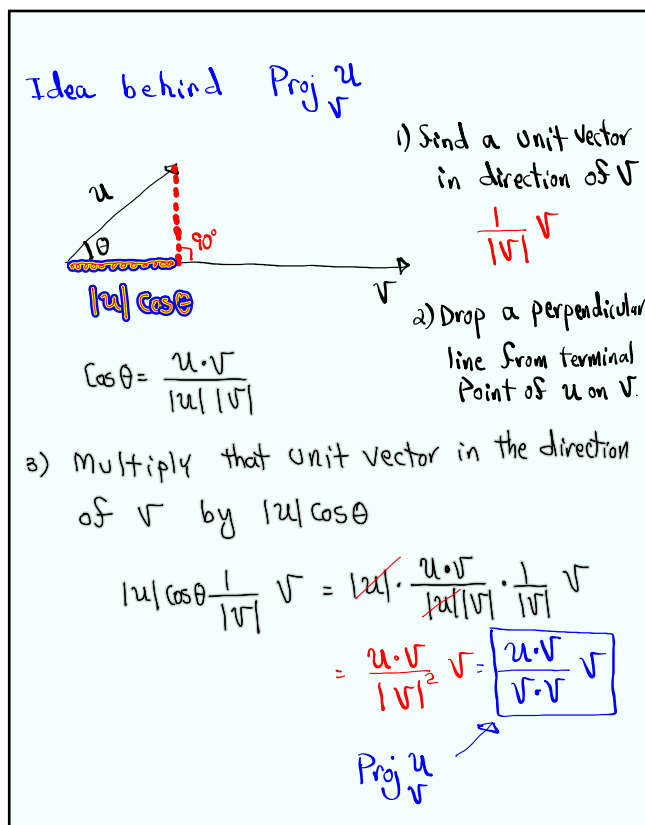 Idea behind Proj_v u
1) find a unit vector
in direction of v
1/|v| v
u
θ
90°
v
|u| cosθ
2) Drop a perpendicular
line from terminal
Point of u on v.
Cosθ = u·v / |u| |v|
3) Multiply that unit vector in the direction
of v by |u| cosθ
|u| cosθ 1/|v| v = |u| · u·v / |u||v| · 1/|v| v
= u·v / |v|² v = u·v / v·v v
Proj_v u